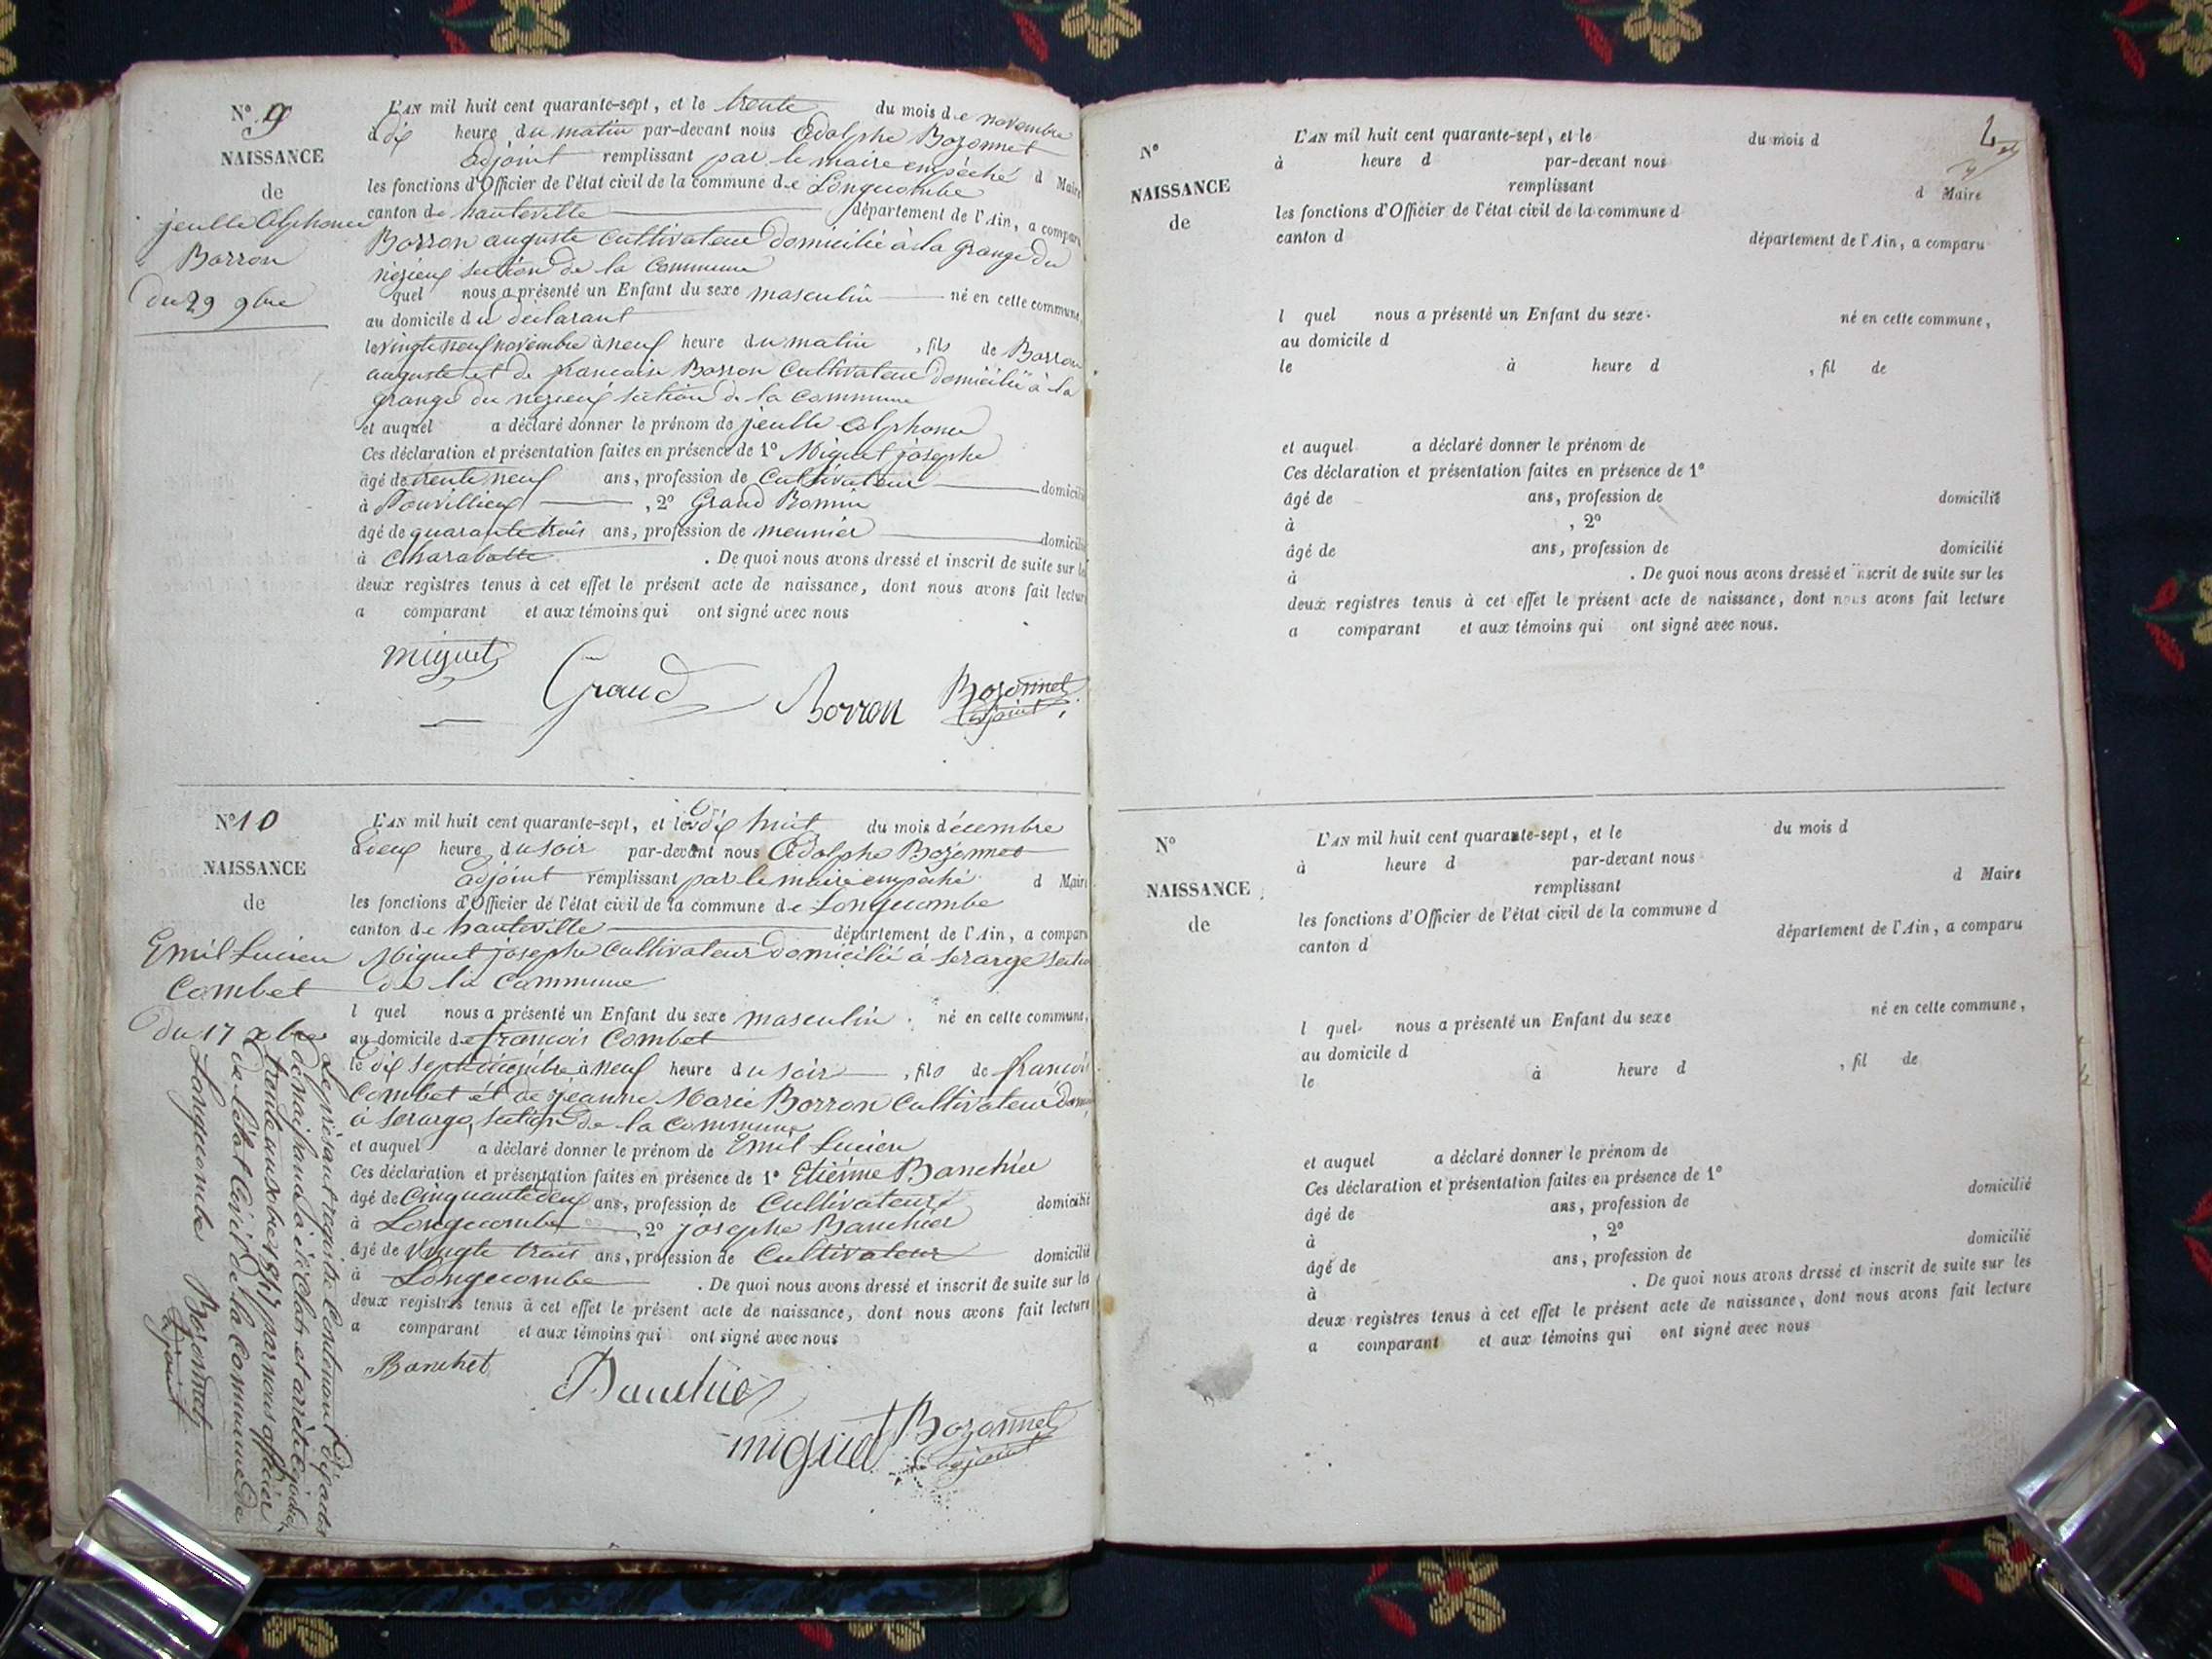 N° 9
NAISSANCE
de
jeulle Alphonse
Borron
du 29 9bre
L'AN mil huit cent quarante-sept, et le trente du mois de novembre
a dix heure du matin par-devant nous Adolphe Bozonnet
adjoint remplissant par le maire empéché d Maire
les fonctions d'Officier de l'état civil de la commune de Longecombe
canton de hauteville département de l'Ain, a comparu
Borron auguste cultivateur domicilié à la grange du
niezieux section de la commune
quel nous a présenté un Enfant du sexe masculin né en cette commune,
au domicile du déclarant
le vingte neuf novembre à neuf heure du matin , fils de Borron
auguste et de francoise Borron Cultivateur domicilié à la
grange du niezieux section de la commune
et auquel a déclaré donner le prénom de jeulle Alphonse
Ces déclaration et présentation faites en présence de 1° Miguet josephe
âgé de trente neuf ans, profession de Cultivateur domicilié
à , 2° Grand Romin
âgé de quarante trois ans, profession de meunier domicilié
à Charabotte . De quoi nous avons dressé et inscrit de suite sur les
deux registres tenus à cet effet le présent acte de naissance, dont nous avons fait lecture
a comparant et aux témoins qui ont signé avec nous
miguet Grand Borron Bozonnet
adjoint
N° 10
NAISSANCE
de
Emil Lucien
Combet
du 17 xbre
L'AN mil huit cent quarante-sept, et le dix huit du mois décembre
a deux heure du soir par-devant nous Adolphe Bozonnet
adjoint remplissant par le maire empéché d Maire
les fonctions d'Officier de l'état civil de la commune de Longecombe
canton de hauteville département de l'Ain, a comparu
Miguet josephe cultivateur domicilié à serarge section
de la Commune
l quel nous a présenté un Enfant du sexe masculin né en cette commune,
au domicile de francois Combet
le dix sept décembre à neuf heure du soir , fils de francois
Combet et de jeanne Marie Borron Cultivateur
à serarge section de la commune
et auquel a déclaré donner le prénom de Emil Lucien
Ces déclaration et présentation faites en présence de 1° Etiénne Banchet
âgé de Cinquante deux ans, profession de Cultivateur domicilié
à Longecombe , 2° josephe Banchet
âgé de Vingte trois ans, profession de Cultivateur domicilié
à Longecombe . De quoi nous avons dressé et inscrit de suite sur les
deux registres tenus à cet effet le présent acte de naissance, dont nous avons fait lecture
a comparant et aux témoins qui ont signé avec nous
Banchet
miguet Bozonnet
adjoint
Le présent registre Contenant Dix actes
de naissance a été Clos et arrêté
trente un xbre 1847 par nous officier
de l'état Civil de la Commune de
Longecombe Bozonnet
adjoint
N°
NAISSANCE
de
L'AN mil huit cent quarante-sept, et le du mois d
à heure d par-devant nous
remplissant d Maire
les fonctions d'Officier de l'état civil de la commune d
canton d département de l'Ain, a comparu
l quel nous a présenté un Enfant du sexe né en cette commune,
au domicile d
le à heure d , fil de
et auquel a déclaré donner le prénom de
Ces déclaration et présentation faites en présence de 1°
âgé de ans, profession de domicilié
à , 2°
âgé de ans, profession de domicilié
à . De quoi nous avons dressé et inscrit de suite sur les
deux registres tenus à cet effet le présent acte de naissance, dont nous avons fait lecture
a comparant et aux témoins qui ont signé avec nous.
N°
NAISSANCE
de
L'AN mil huit cent quarante-sept, et le du mois d
à heure d par-devant nous
remplissant d Maire
les fonctions d'Officier de l'état civil de la commune d
canton d département de l'Ain, a comparu
l quel nous a présenté un Enfant du sexe né en cette commune,
au domicile d
le à heure d , fil de
et auquel a déclaré donner le prénom de
Ces déclaration et présentation faites en présence de 1°
âgé de ans, profession de domicilié
à , 2°
âgé de ans, profession de domicilié
à . De quoi nous avons dressé et inscrit de suite sur les
deux registres tenus à cet effet le présent acte de naissance, dont nous avons fait lecture
a comparant et aux témoins qui ont signé avec nous